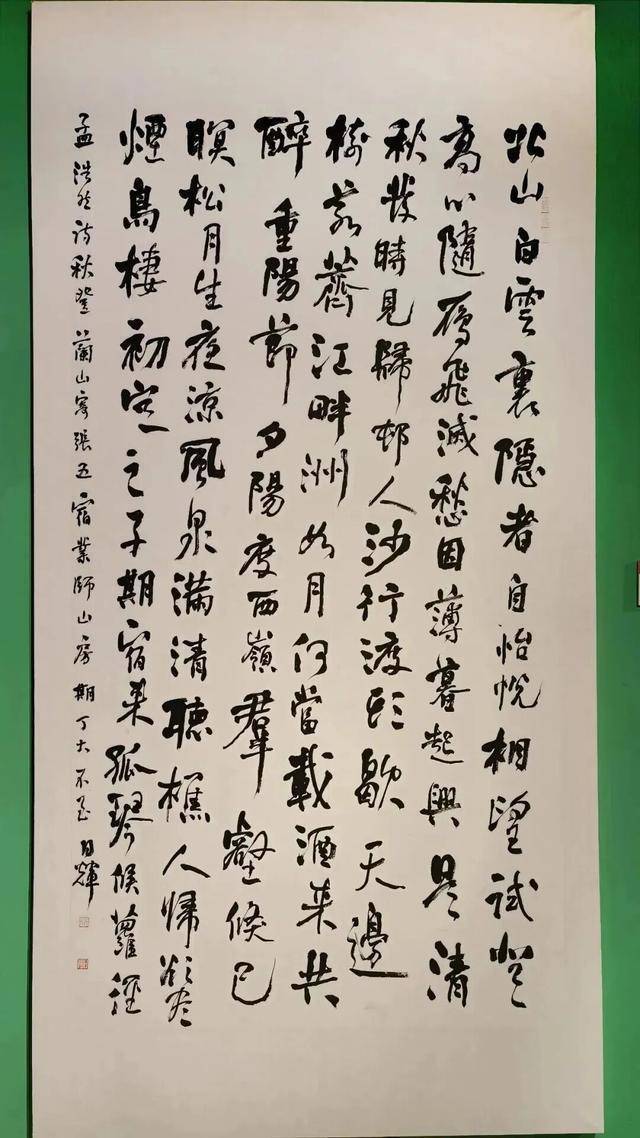 北山白雲裏隱者自怡悅相望試登
高心隨雁飛滅愁因薄暮起興是清
秋發時見歸邨人沙行渡頭歇天邊
樹若薺江畔洲如月何當載酒來共
醉重陽節夕陽度西嶺羣壑倏已
暝松月生夜涼風泉滿清聽樵人歸欲盡
煙鳥棲初定之子期宿來孤琴候蘿徑
孟浩然詩秋登蘭山寄張五宿業師山房期丁大不至日輝